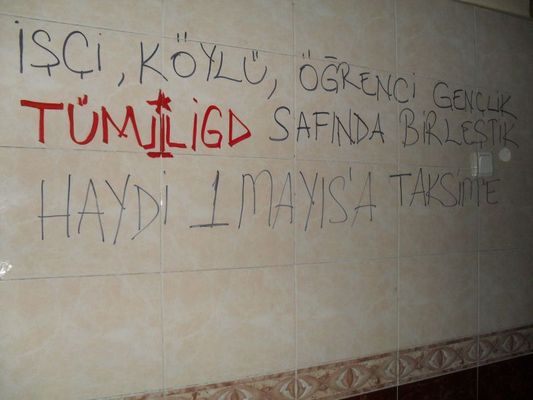 İŞÇİ, KÖYLÜ, ÖĞRENCİ GENÇLİK
TÜMİLİGD SAFINDA BİRLEŞTİK
HAYDİ 1 MAYIS'A TAKSİM'E